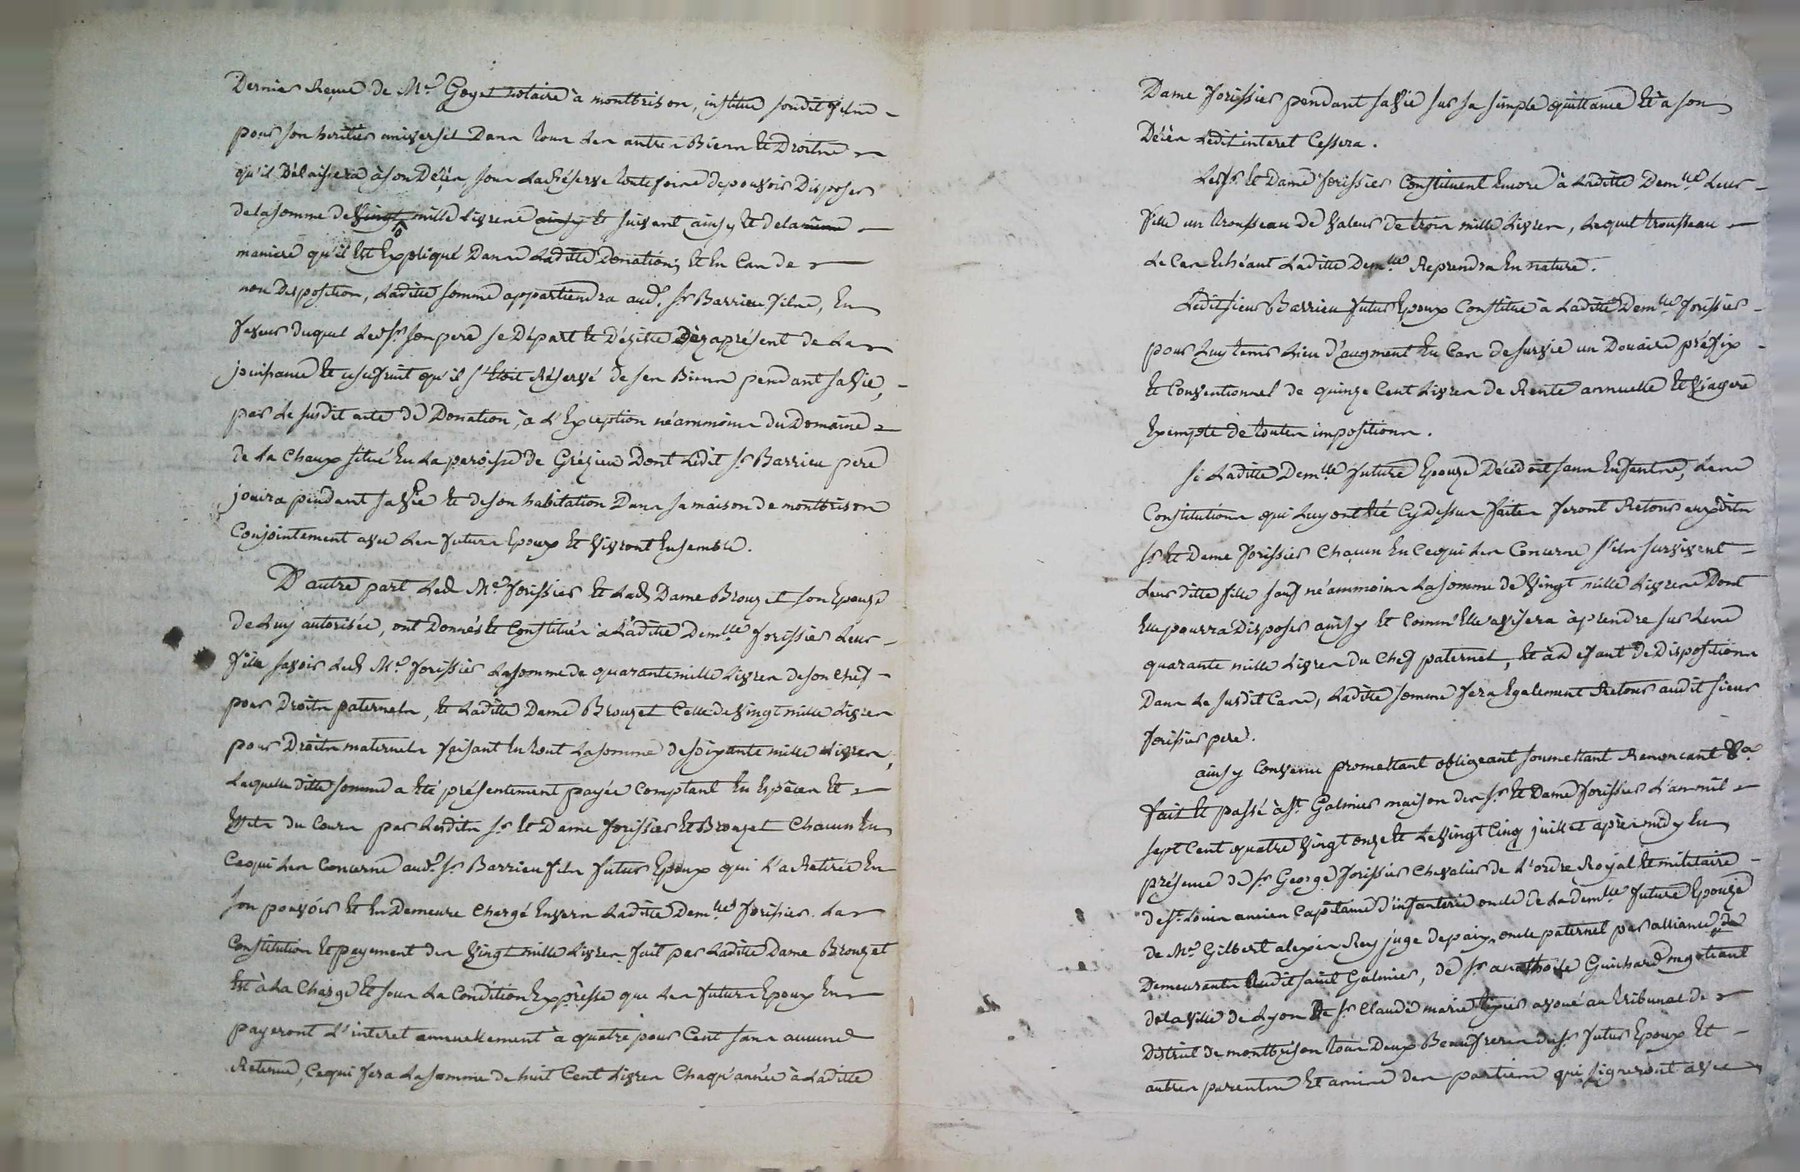 Dernier Reçue de Me Goyet notaire à montbrison, institue sondit filne
pour son heritier universel Dans tous les autres Biens et Droits
qu'il Délaissera à son Décès, sous la Réserve toutefoire de pouvoir Disposer
de la somme de vingt mille Livres ainsy et suivant ainsy et de la même
maniere qu'il est Expliqué Dans Laditte Donation; Et En Cas de
non Disposition, Laditte somme appartiendra aud. Sr Barrieu filne, En
faveur duquel Led Sr son pere se Départ et Désiste Dèz aprésent de La
jouissance Et usufruit qu'il s'Etoit Réservé de ses Biens pendant sa Vie,
par Le susdit acte de Donation, à L'Exception néanmoins du Domaine
de La Chaux situé En La paroisse de Grézieu Dont Ledit Sr Barrieu pere
jouira pendant sa Vie Et de son habitation Dans sa maison de montbrison
Conjointement avec Les futurs Epoux Et Vivront Ensemble.
D'autre part Led. Me Forissier Et Lad. Dame Brouzet son Epouse
de Luy autorisée, ont Donnés Et Constitués à Laditte Demlle Forissier Leur
fille savoir Led. Me Forissier La somme de quarante mille Livres de son Chef
pour Droits paternels, Et Laditte Dame Brouzet Celle de Vingt mille Livres
pour Droits maternels faisant En tout La somme de soixante mille Livres,
Laquelle ditte somme a Eté présentement payée Comptant En Espèces Et
Effets du Cours par Lesdits Sr Et Dame Forissier Et Brouzet Chacun En
Ce qui Les Concerne aud. Sr Barrieu fils futur Epoux qui L'a Retirée En
son pouvoir Et En Demeure Chargé Envers Laditte Demlle Forissier. La
Constitution Et payement des Vingt mille Livres fait par Laditte Dame Brouzet
Est à La Charge Et sous La Condition Expresse que Les futurs Epoux En
payeront L'interet annuellement à quatre pour Cent sans aucune
Retenue, Ce qui fera La somme de huit Cent Livres Chaqu'année à Laditte
Dame Forissier pendant sa Vie sur sa simple quittance Et à son
Décès Ledit interet Cessera.
Les Sr Et Dame Forissier Constituent Encore à Laditte Demlle Leur
fille un trousseau de Valeur de trois mille Livres, Lequel trousseau
Le Cas Echéant Laditte Demlle Reprendra En nature.
Ledit sieur Barrieu futur Epoux Constitue à Laditte Demlle Forissier
pour Luy tenir Lieu d'augment En Cas de survie un Douaire préfix
Et Conventionnel de quinze Cent Livres de Rente annuelle Et Viagere
Exempte de toutes impositions.
Si Laditte Demlle future Epouze Décedoit sans Enfants, Les
Constitutions qui Luy ont Eté Cy Dessus faites feront Retour auxdits
Sr Et Dame Forissier Chacun En Ce qui Les Concerne s'ils survivent
Leur ditte fille sauf néammoins La somme de Vingt mille Livres Dont
Elle pourra Disposer ainsy Et Comm'Elle avisera à prendre sur Les
quarante mille Livres du Chef paternel, Et à Defaut de Disposition
Dans Le susdit Cas, Laditte somme fera Egalement Retour audit sieur
Forissier pere.
ainsy Convenu promettant obligeant soumettant Renoncant &a
fait Et passé à St Galmier maison des Sr Et Dame Forissier L'an mil
sept Cent quatre Vingt onze Et Le Vingt Cinq juillet après midy En
présence de Sr George Forissier Chevalier de L'ordre Royal Et militaire
de St Louis ancien Capitaine D'infanterie oncle de La demlle future Epouze
de Me Gilbert alexis Rey juge de paix, oncle paternel par alliance
Demeurants audit saint Galmier, de Sr anthoise Guichard negotiant
de La Ville de Lyon Et Sr Claude marie avoué au tribunal de
District de montbrison tous Deux Beaufreres du Sr futur Epoux Et
autres parents Et amis des parties qui signeront avec